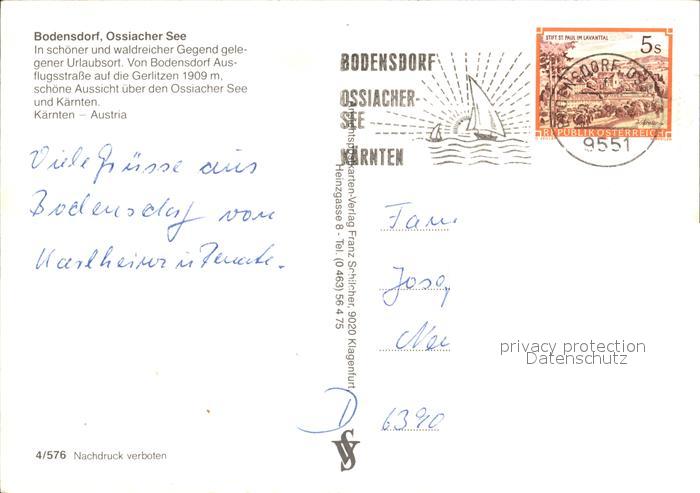 Bodensdorf, Ossiacher See
In schöner und waldreicher Gegend gele-
gener Urlaubsort. Von Bodensdorf Aus-
flugsstraße auf die Gerlitzen 1909 m,
schöne Aussicht über den Ossiacher See
und Kärnten.
Kärnten – Austria
BODENSDORF
OSSIACHER-
SEE
KÄRNTEN
STIFT ST. PAUL IM LAVANTTAL
5s
REPUBLIK ÖSTERREICH
9551
Viele Grüsse aus
Bodensdorf von
Karlheinz u Renate.
Ansichtspostkarten-Verlag Franz Schilcher, 9020 Klagenfurt
Heinzgasse 8 - Tel. (0 463) 56 4 75
Fam.
Josef
privacy protection
Datenschutz
D 6390
4/576 Nachdruck verboten